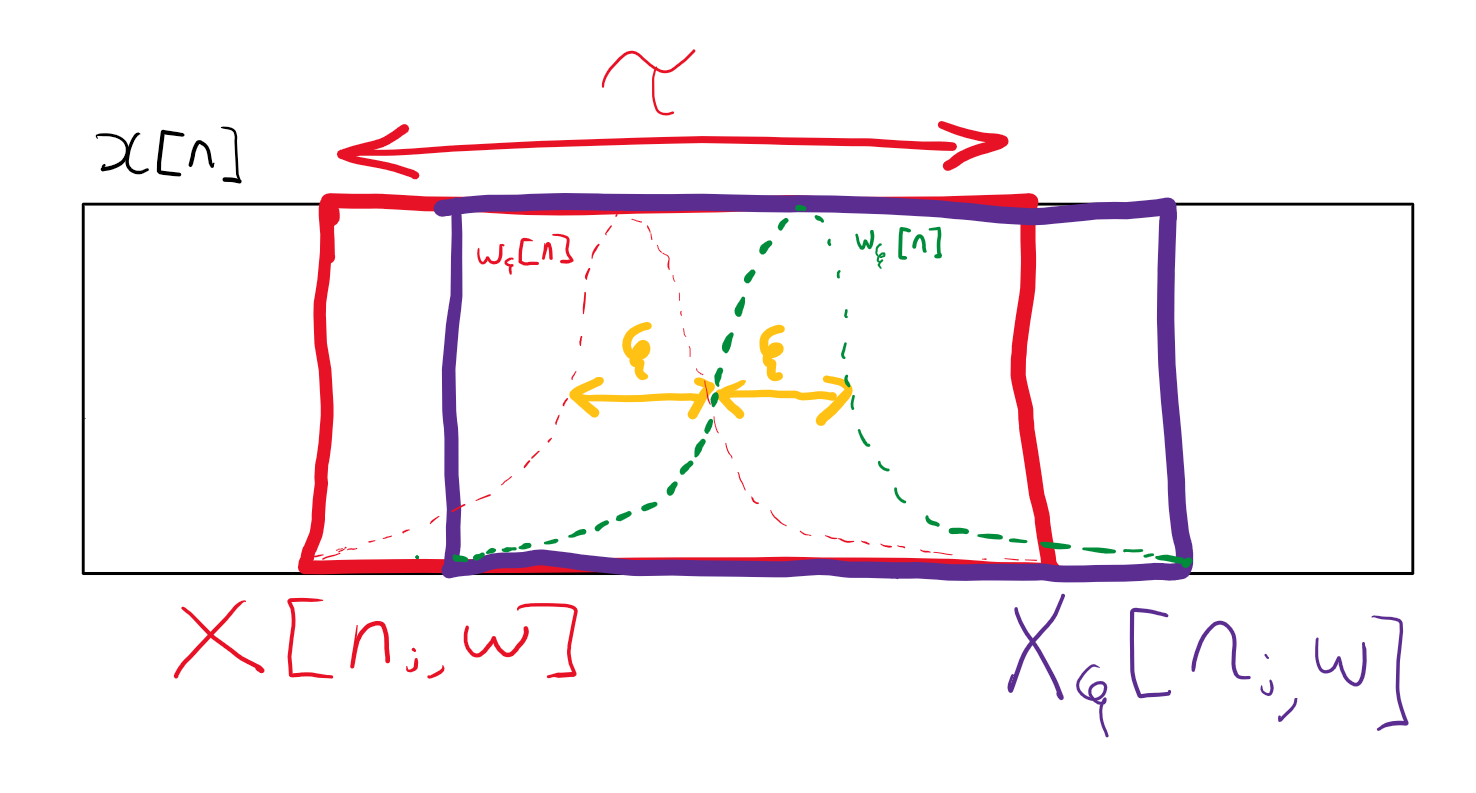 τ
x[n]
w_ξ[n] w_ξ[n]
ξ ξ
X[n_i, w] X_ξ[n_i, w]